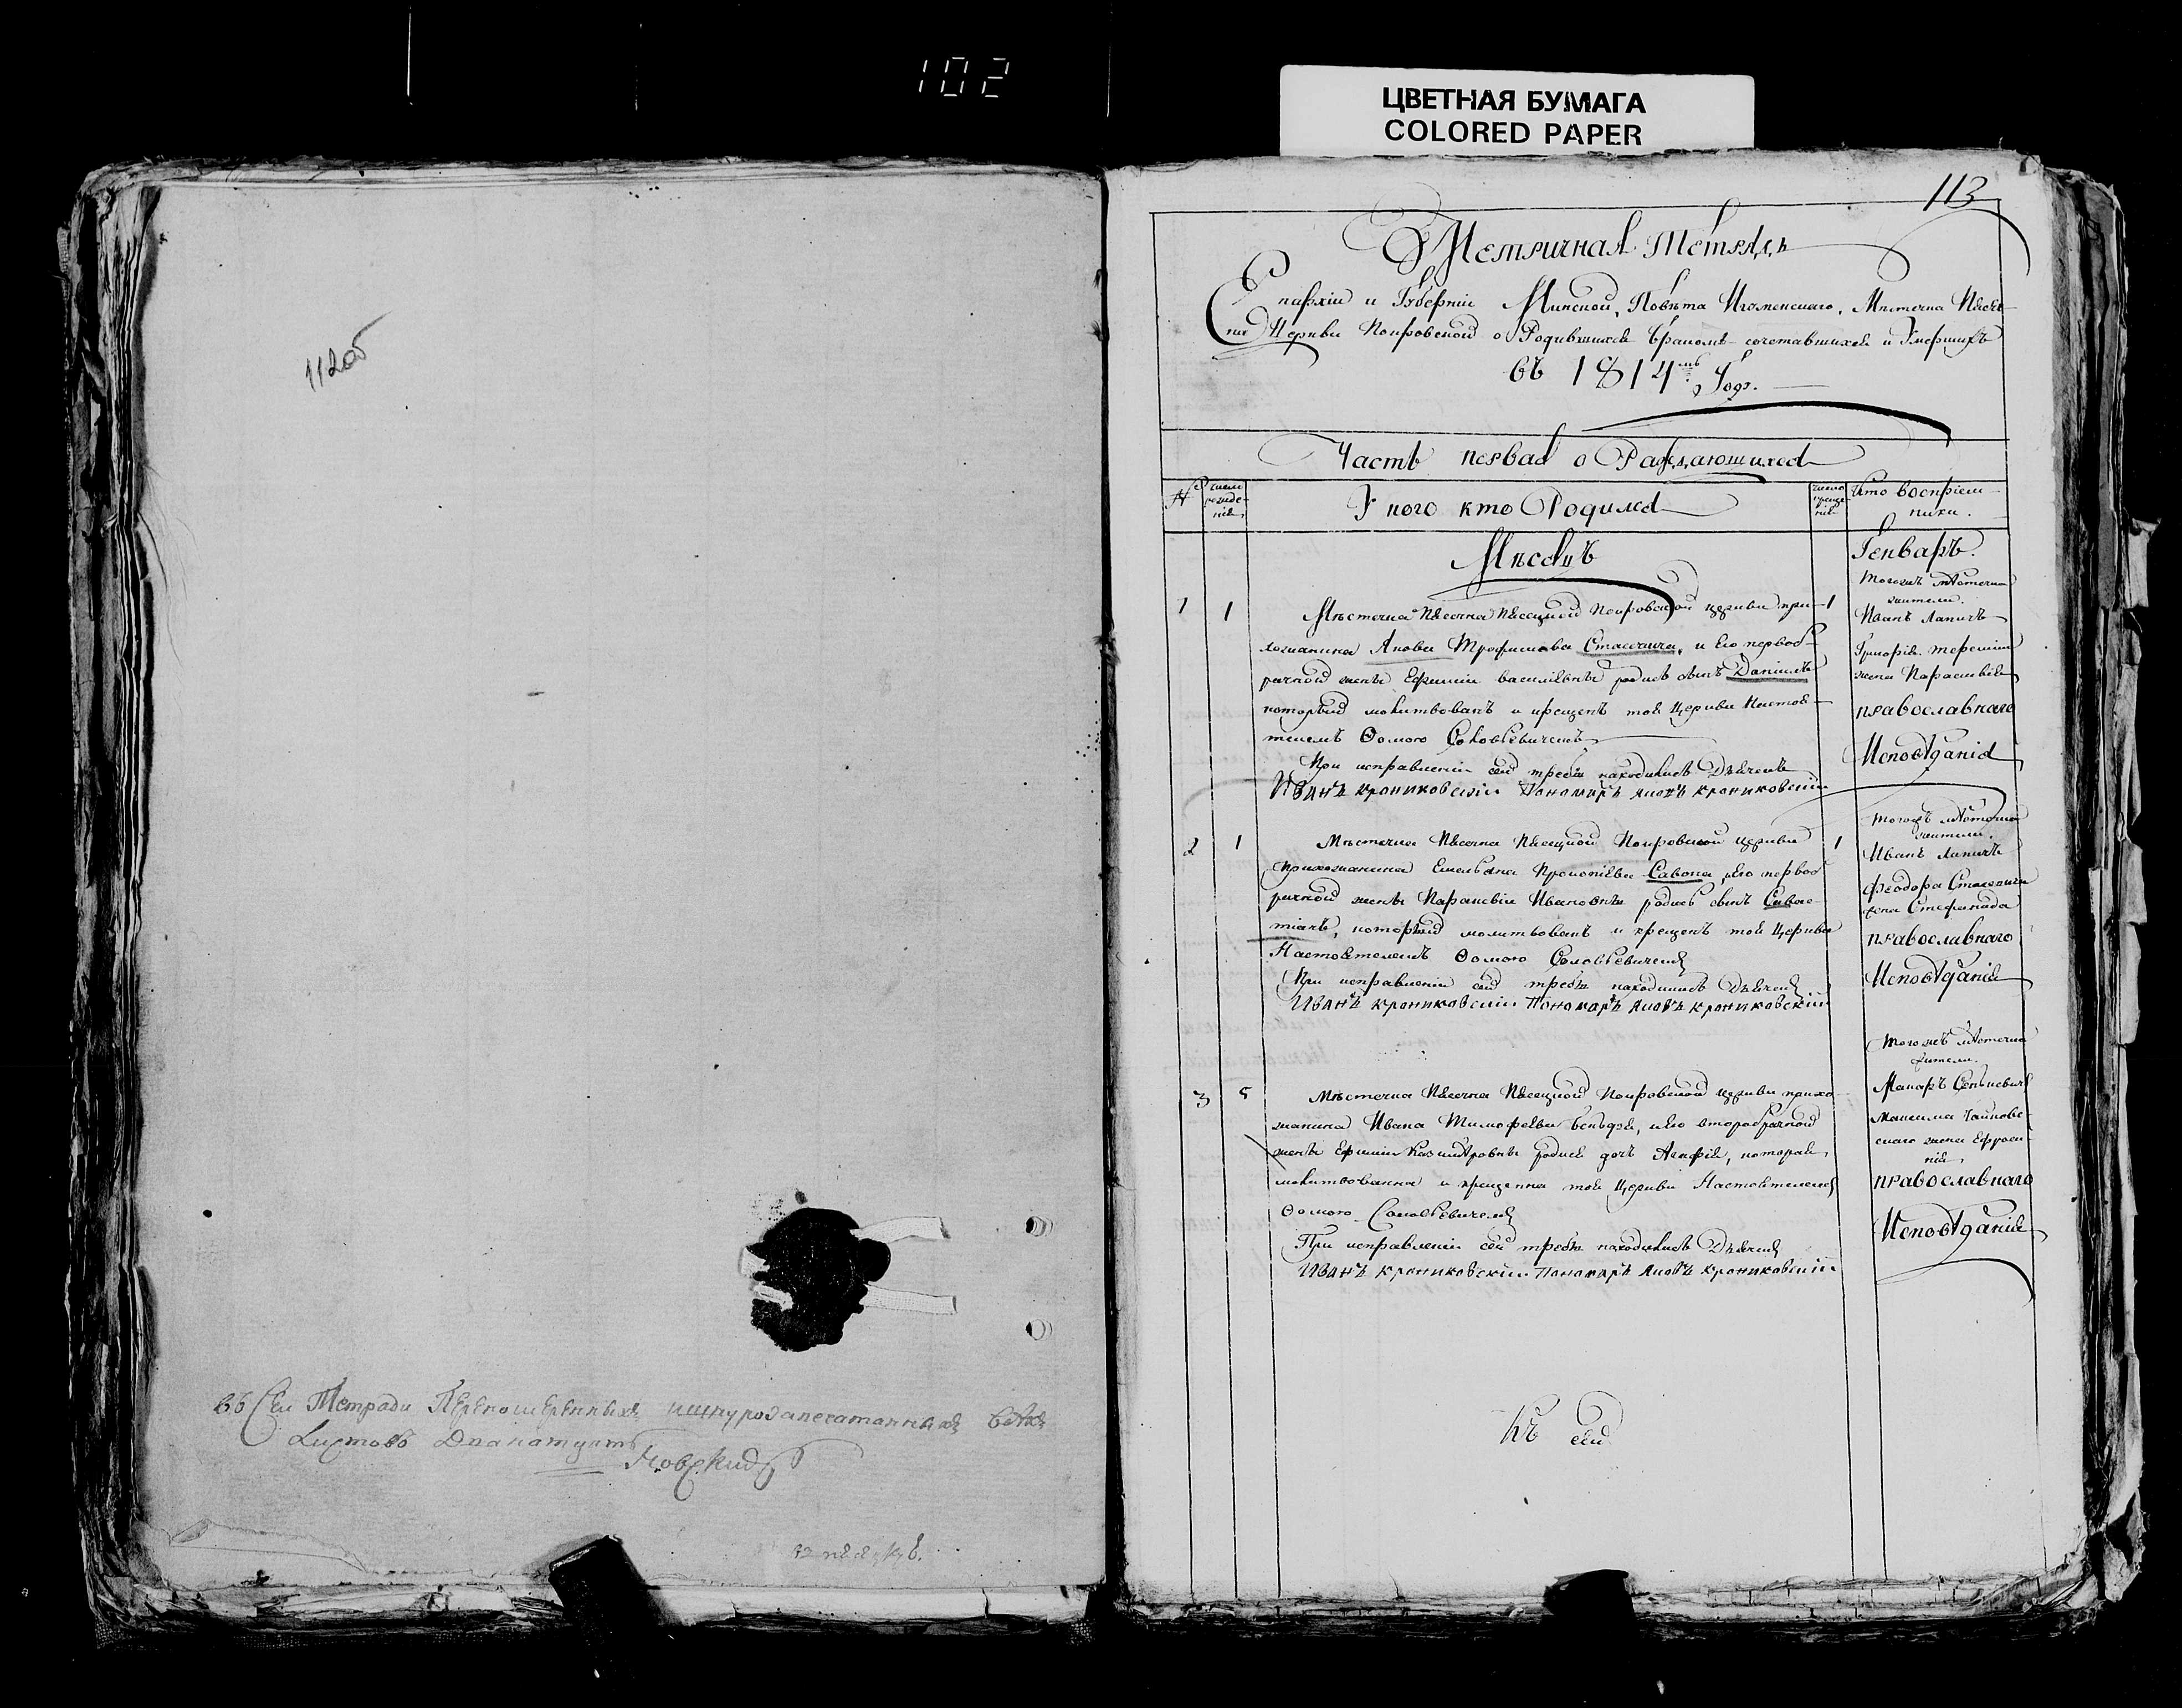 102
ЦВЕТНАЯ БУМАГА
COLORED PAPER
112об
въ Сей Тетради Перепомѣренныхъ ишнурозапечатанныхъ всѣхъ
Листовъ Дванатцать
113
Метричная Тетрадь
Епархіи и Губерніи Минской, Повѣта Игуменскаго, Мѣстечка Пѣсеч-
на Церкви Покровской о Родившихся бракомъ сочетавшихся и Умершихъ
въ 1814мъ Годѣ.
Часть первая о Раждающихся
№ число рожде-нія У кого кто Родился число креще-нія Кто воспріем-ники.
Мѣсяцъ Генварь.
1 1 Мѣстечка Пѣсечна Пѣсецкой Покровской церкви при- 1
хожанина Якова Трофимова Стасевича, и Его первоб-
рачной жены Ефиміи василіевны родився сынъ Даніилъ
который молитвованъ и крещенъ той Церкви Настоя-
телемъ Ѳомою Соловьевичемъ
При исправленіи сей требы находились Дьячекъ
Иванъ крониковскіи Пономаръ Яковъ крониковскіи
тогожъ мѣстечка
жители.
Иванъ Лапичъ
Григорія
жена Параскевія
православнаго
Исповѣданія
2 1 Мѣстечка Пѣсечна Пѣсецкой Покровской церкви 1
прихожанина Емельяна Прокопіева Савона, иЕго первоб
рачной жены Параскевіи Ивановны родився сынъ Савас-
тіанъ, который молитвованъ и крещенъ той Церкви
Настоятелемъ Ѳомою Соловьевичемъ
При исправленіи сей требы находились Дьячекъ
Иванъ крониковскіи Пономаръ Яковъ крониковскіи
тогожъ мѣстечка
жители.
Иванъ Лапичъ
феодора Стасевича
жена Стефанида
православнаго
Исповѣданія
3 5 Мѣстечка Пѣсечна Пѣсецкой Покровской церкви прихо-
жанина Ивана Тимофеева Бельдзя, иЕго второбрачной
жены Ефиміи Казиміровны родися дочъ Агафія, которая
молитвованна и крещенна той Церкви Настоятелемъ
Ѳомою Соловьевичемъ
При исправленіи сей требы находились Дьячекъ
Иванъ крониковскіи Пономаръ Яковъ крониковскіи
тогожъ мѣстечка
жители.
Макаръ Сенкевичъ
Максима Чайковс-
скаго жена Ефроси-
нія
православнаго
Исповѣданія
Къ сей